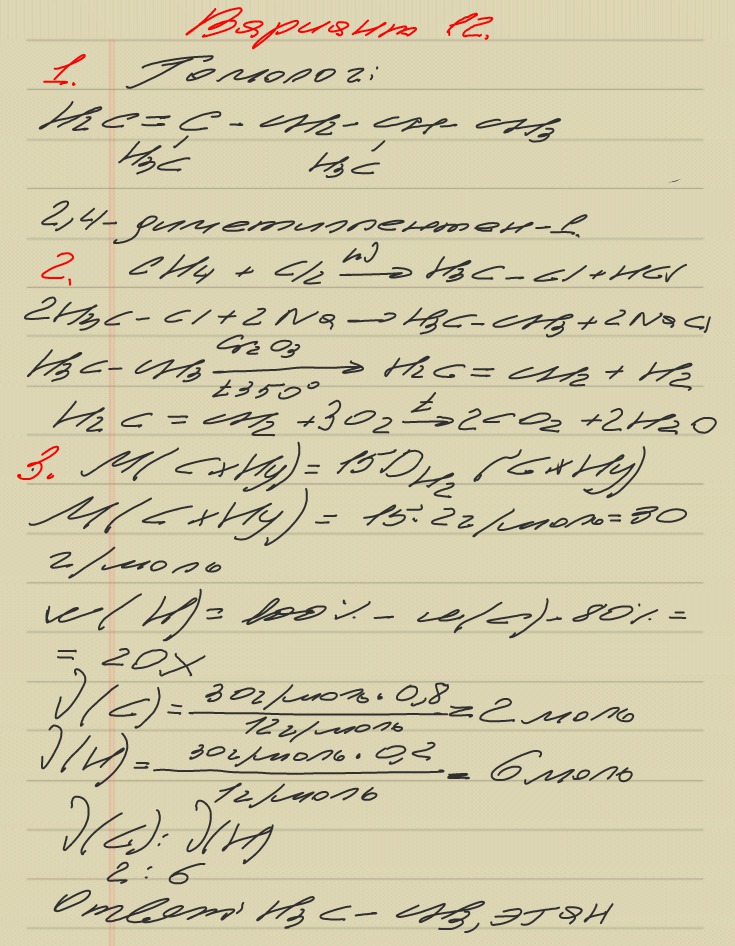 Вариант 12.
1. Гомолог:
H₂C = C - CH₂ - CH - CH₃
H₃C H₃C
2,4-диметилпентен-1.
2. CH₄ + Cl₂ hν→ H₃C - Cl + HCl
2H₃C - Cl + 2Na → H₃C - CH₃ + 2NaCl
H₃C - CH₃ Cr₂O₃→ t 350° H₂C = CH₂ + H₂
H₂C = CH₂ + 3O₂ t→ 2CO₂ + 2H₂O
3. M(CxHy) = 15D H₂ (CxHy)
M(CxHy) = 15·2г/моль = 30
г/моль
w(H) = 100% - w(C) - 80% =
= 20%
ν(C) = 30г/моль · 0,8 / 12г/моль = 2 моль
ν(H) = 30г/моль · 0,2 / 1г/моль = 6 моль
ν(C) : ν(H)
2 : 6
Ответ: H₃C - CH₃, этан